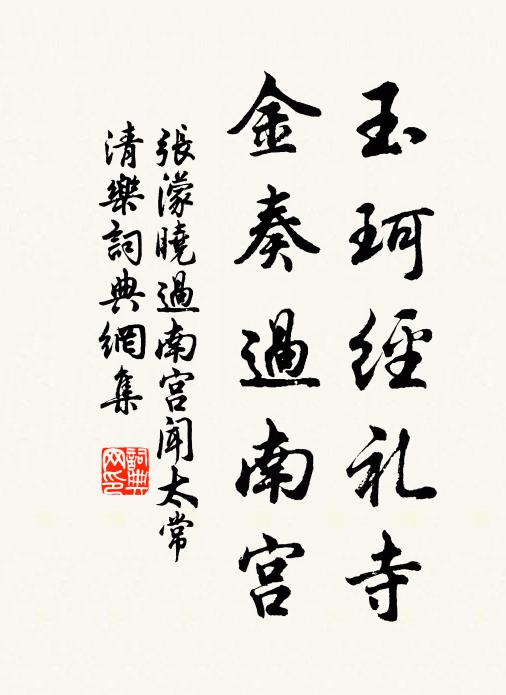 玉珂經礼寺
金奏過南宮
張濛曉過南宮聞太常
清樂詞典網集
詞典网印